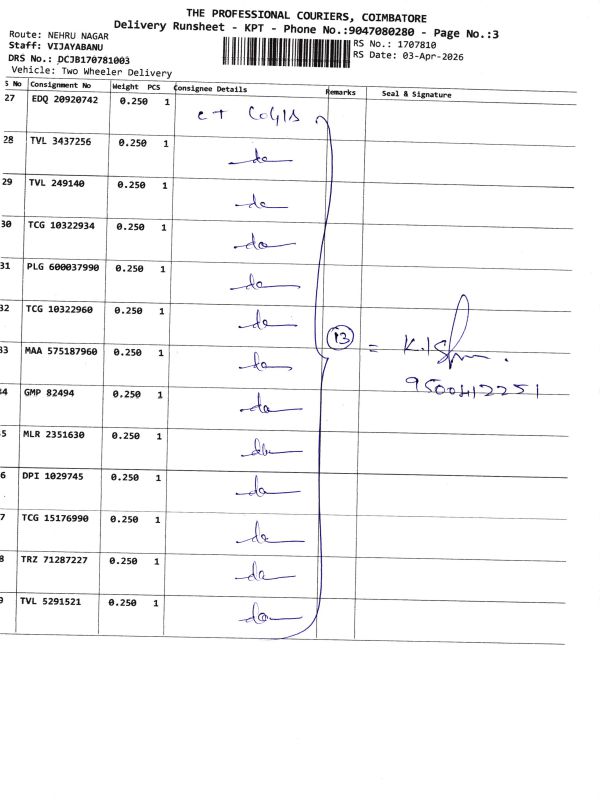 THE PROFESSIONAL COURIERS, COIMBATORE
Delivery Runsheet - KPT - Phone No.:9047080280 - Page No.:3
Route: NEHRU NAGAR
Staff: VIJAYABANU
RS No.: 1707810
DRS No.: DCJB170781003
RS Date: 03-Apr-2026
Vehicle: Two Wheeler Delivery
S No Consignment No Weight PCS Consignee Details Remarks Seal & Signature
27 EDQ 20920742 0.250 1
28 TVL 3437256 0.250 1 do
29 TVL 249140 0.250 1 do
30 TCG 10322934 0.250 1 do
31 PLG 600037990 0.250 1 do
32 TCG 10322960 0.250 1 do
33 MAA 575187960 0.250 1 do
13 =
34 GMP 82494 0.250 1 do
9500412251
5 MLR 2351630 0.250 1 do
6 DPI 1029745 0.250 1 do
7 TCG 15176990 0.250 1 do
8 TRZ 71287227 0.250 1 do
9 TVL 5291521 0.250 1 do